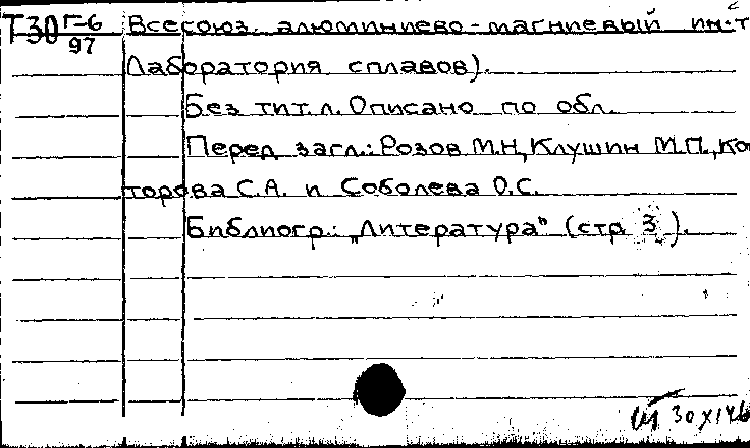 Т30 Г-6/97 Всесоюз. алюминиево-магниевый ин-т
Лаборатория сплавов).
Без тит. л. Описано по обл.
Перед загл.: Розов М.Н, Клушин М.П., Ко
торова С.А. и Соболева О.С.
Библиогр.: „Литература" (стр 3 ).